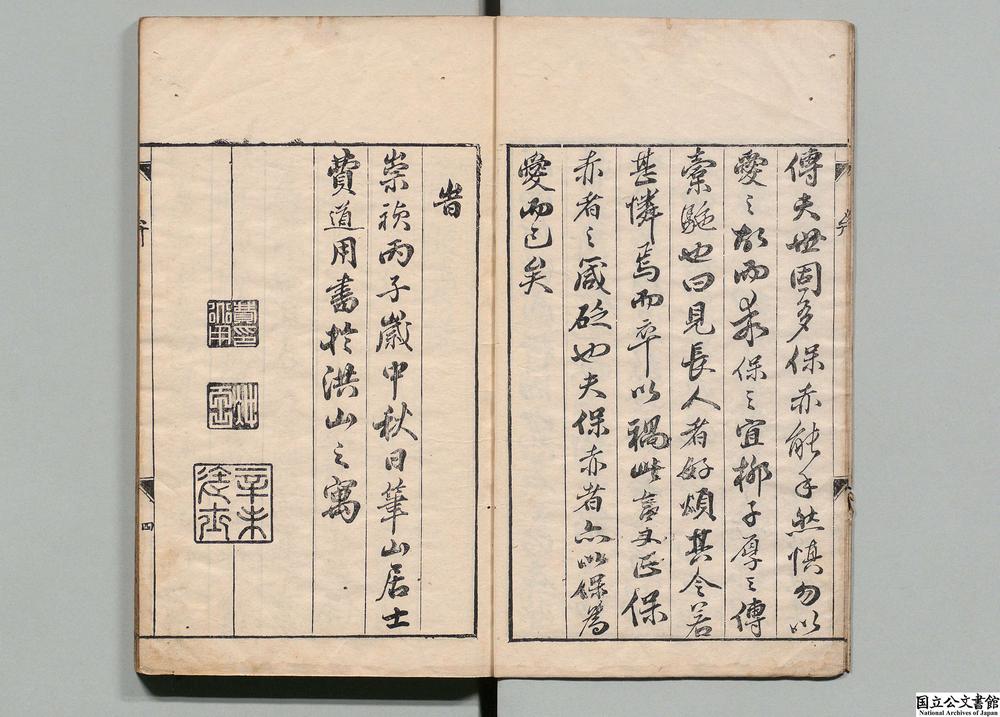 傳夫世固多保赤能手然慎勿以
愛之故而乖保之宜柳子厚之傳
橐駝也曰見長人者好煩其令若
甚憐焉而卒以禍此言又正保
赤者之箴砭也夫保赤者亦以保為
愛而已矣
旹
崇禎丙子歲中秋日筆山居士
費道用書於洪山之寓
費印
道用
辛未
進士
四
国立公文書館
National Archives of Japan